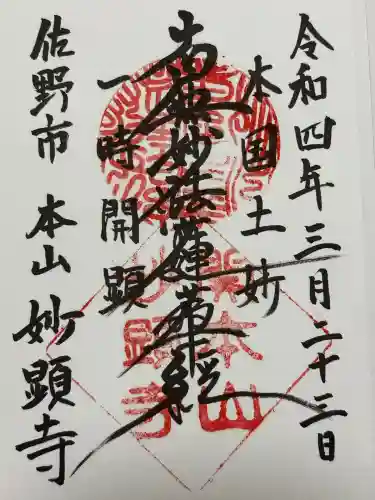 令和四年三月二十三日
本国土妙
南無妙法蓮華経
一時開顕
佐野市 本山妙顕寺